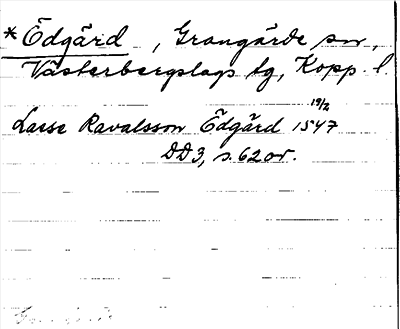 *Ödgärd, Grangärde sn,
Västerbergslags tg, Kopp. l.
Lasse Ravalsson Ödgärd 19/2 1547
DD3, s. 62 or.